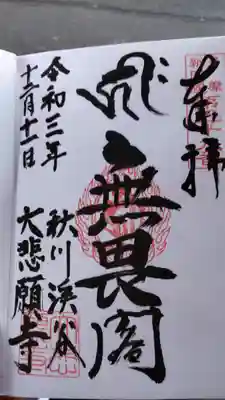 奉拝
無畏閣
秋川渓谷
大悲願寺
令和三年
十二月十一日